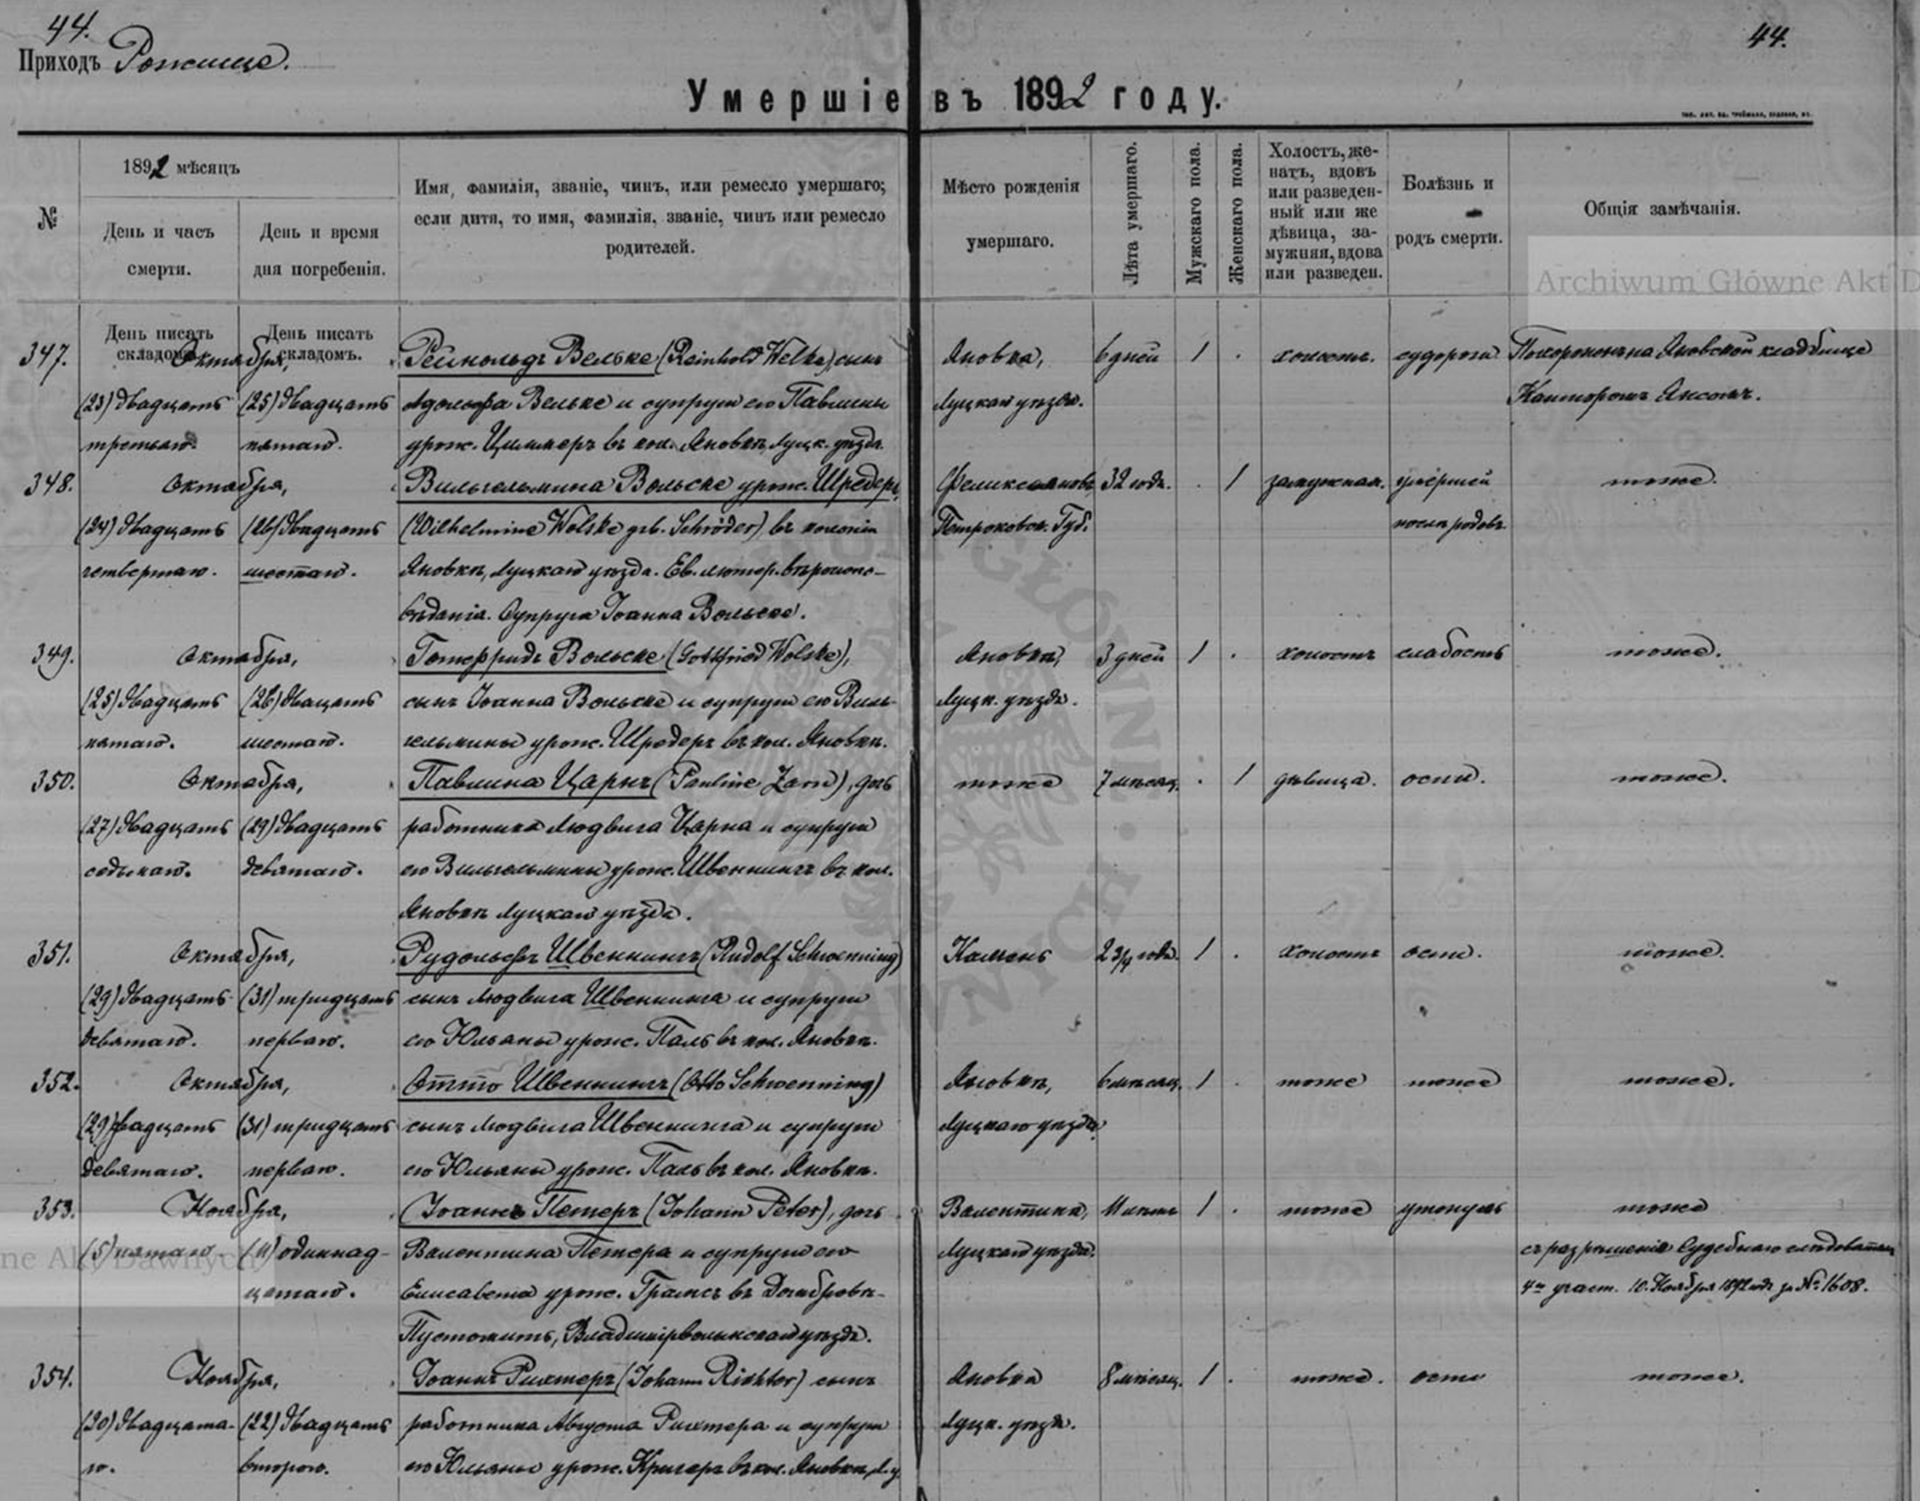 44.
44.
Приходъ Рожище.
Умершіе въ 1892 году.
№
1892 мѣсяцъ
День и часъ
смерти.
День и время
дня погребенія.
Имя, фамилія, званіе, чинъ, или ремесло умершаго;
если дитя, то имя, фамилія, званіе, чинъ или ремесло
родителей.
Мѣсто рожденія
умершаго.
Лѣта умершаго.
Мужскаго пола.
Женскаго пола.
Холостъ, же-
натъ, вдовъ
или разведен-
ный или же
дѣвица, за-
мужняя, вдова
или разведен.
Болѣзнь и
родъ смерти.
Общія замѣчанія.
Archiwum Główne Akt D
День писать
складомъ.
День писать
складомъ.
347. Октября, Рейнольдъ Вельке (Reinhold Welke), сынъ Яновка, 6 дней 1 . холостъ. судороги Похороненъ на Яновской кладбище
(23) двадцать (25) двадцать Адольфа Вельке и супруги его Павлины Луцкаго уѣзда. Канторомъ
третьяго. пятаго. урож. Циммеръ въ кол. Яновкѣ, Луцк. уѣзда.
348. Октября, Вильгельмина Вольске урож. Шредеръ, 32 года. . 1 замужняя. умершей тоже.
(24) двадцать (26) двадцать (Wilhelmine Wolske geb. Schröder) въ колоніи Петроковск. Губ. послѣ родовъ
четвертаго. шестаго. Яновкѣ, Луцкаго уѣзда. Ев. лютер. вѣроиспо-
вѣданія. Супруга Іоанна Вольске.
349. Октября, Готфридъ Вольске (Gottfried Wolske), Яновкѣ, 3 дней 1 . холостъ слабость тоже.
(25) двадцать (26) двацать сынъ Іоанна Вольске и супруги его Виль- Луцк. уѣзда.
пятаго. шестаго. гельмины урож. Шредеръ въ кол. Яновкѣ.
350. Октября, Павлина Царнъ (Pauline Zarn), дочь тоже 7 мѣсяц. . 1 дѣвица. оспи. тоже.
(27) двадцать (29) двадцать работника Людвига Царна и супруги
седьмаго. девятаго. его Вильгельмины урож. Швеннингъ въ кол.
Яновкѣ Луцкаго уѣзда.
351. Октября, Рудольфъ Швеннингъ (Rudolf Schwenning) Камень 2 3/4 года. 1 . холостъ оспи. тоже.
(29) двадцать (31) тридцать сынъ Людвига Швеннинга и супруги
девятаго. перваго. его Юльяны урож. Паль въ кол. Яновкѣ.
352. Октября, Отто Швеннингъ (Otto Schwenning) Яновкѣ, 6 мѣсяц. 1 . тоже тоже тоже.
(29) двадцать (31) тридцать сынъ Людвига Швеннинга и супруги Луцкаго уѣзда.
девятаго. перваго. его Юльяны урож. Паль въ кол. Яновкѣ.
353. Ноября, Іоаннъ Петеръ (Johann Peter), дочь Валентина, 1 . тоже утонулъ тоже
(5) пятаго. (11) одиннад- Валентина Петера и супруги его Луцкаго уѣзда. съ разрѣшенія Судебнаго
цатаго. Елисавета урож. въ Домбровѣ- 4го участ. 10. Ноября 1892 года за № 1608.
Владимірволынскаго уѣзда.
354. Ноября, Іоаннъ Рихтеръ (Johann Richter) сынъ Яновка 8 мѣсяц. 1 . тоже. оспи тоже.
(20) двадцата- (22) двадцать работника Августа Рихтера и супруги Луцк. уѣзда.
го. второго. его Юльяны урож. Кригеръ въ кол. Яновкѣ, Л. у.
ne Akt Dawnych